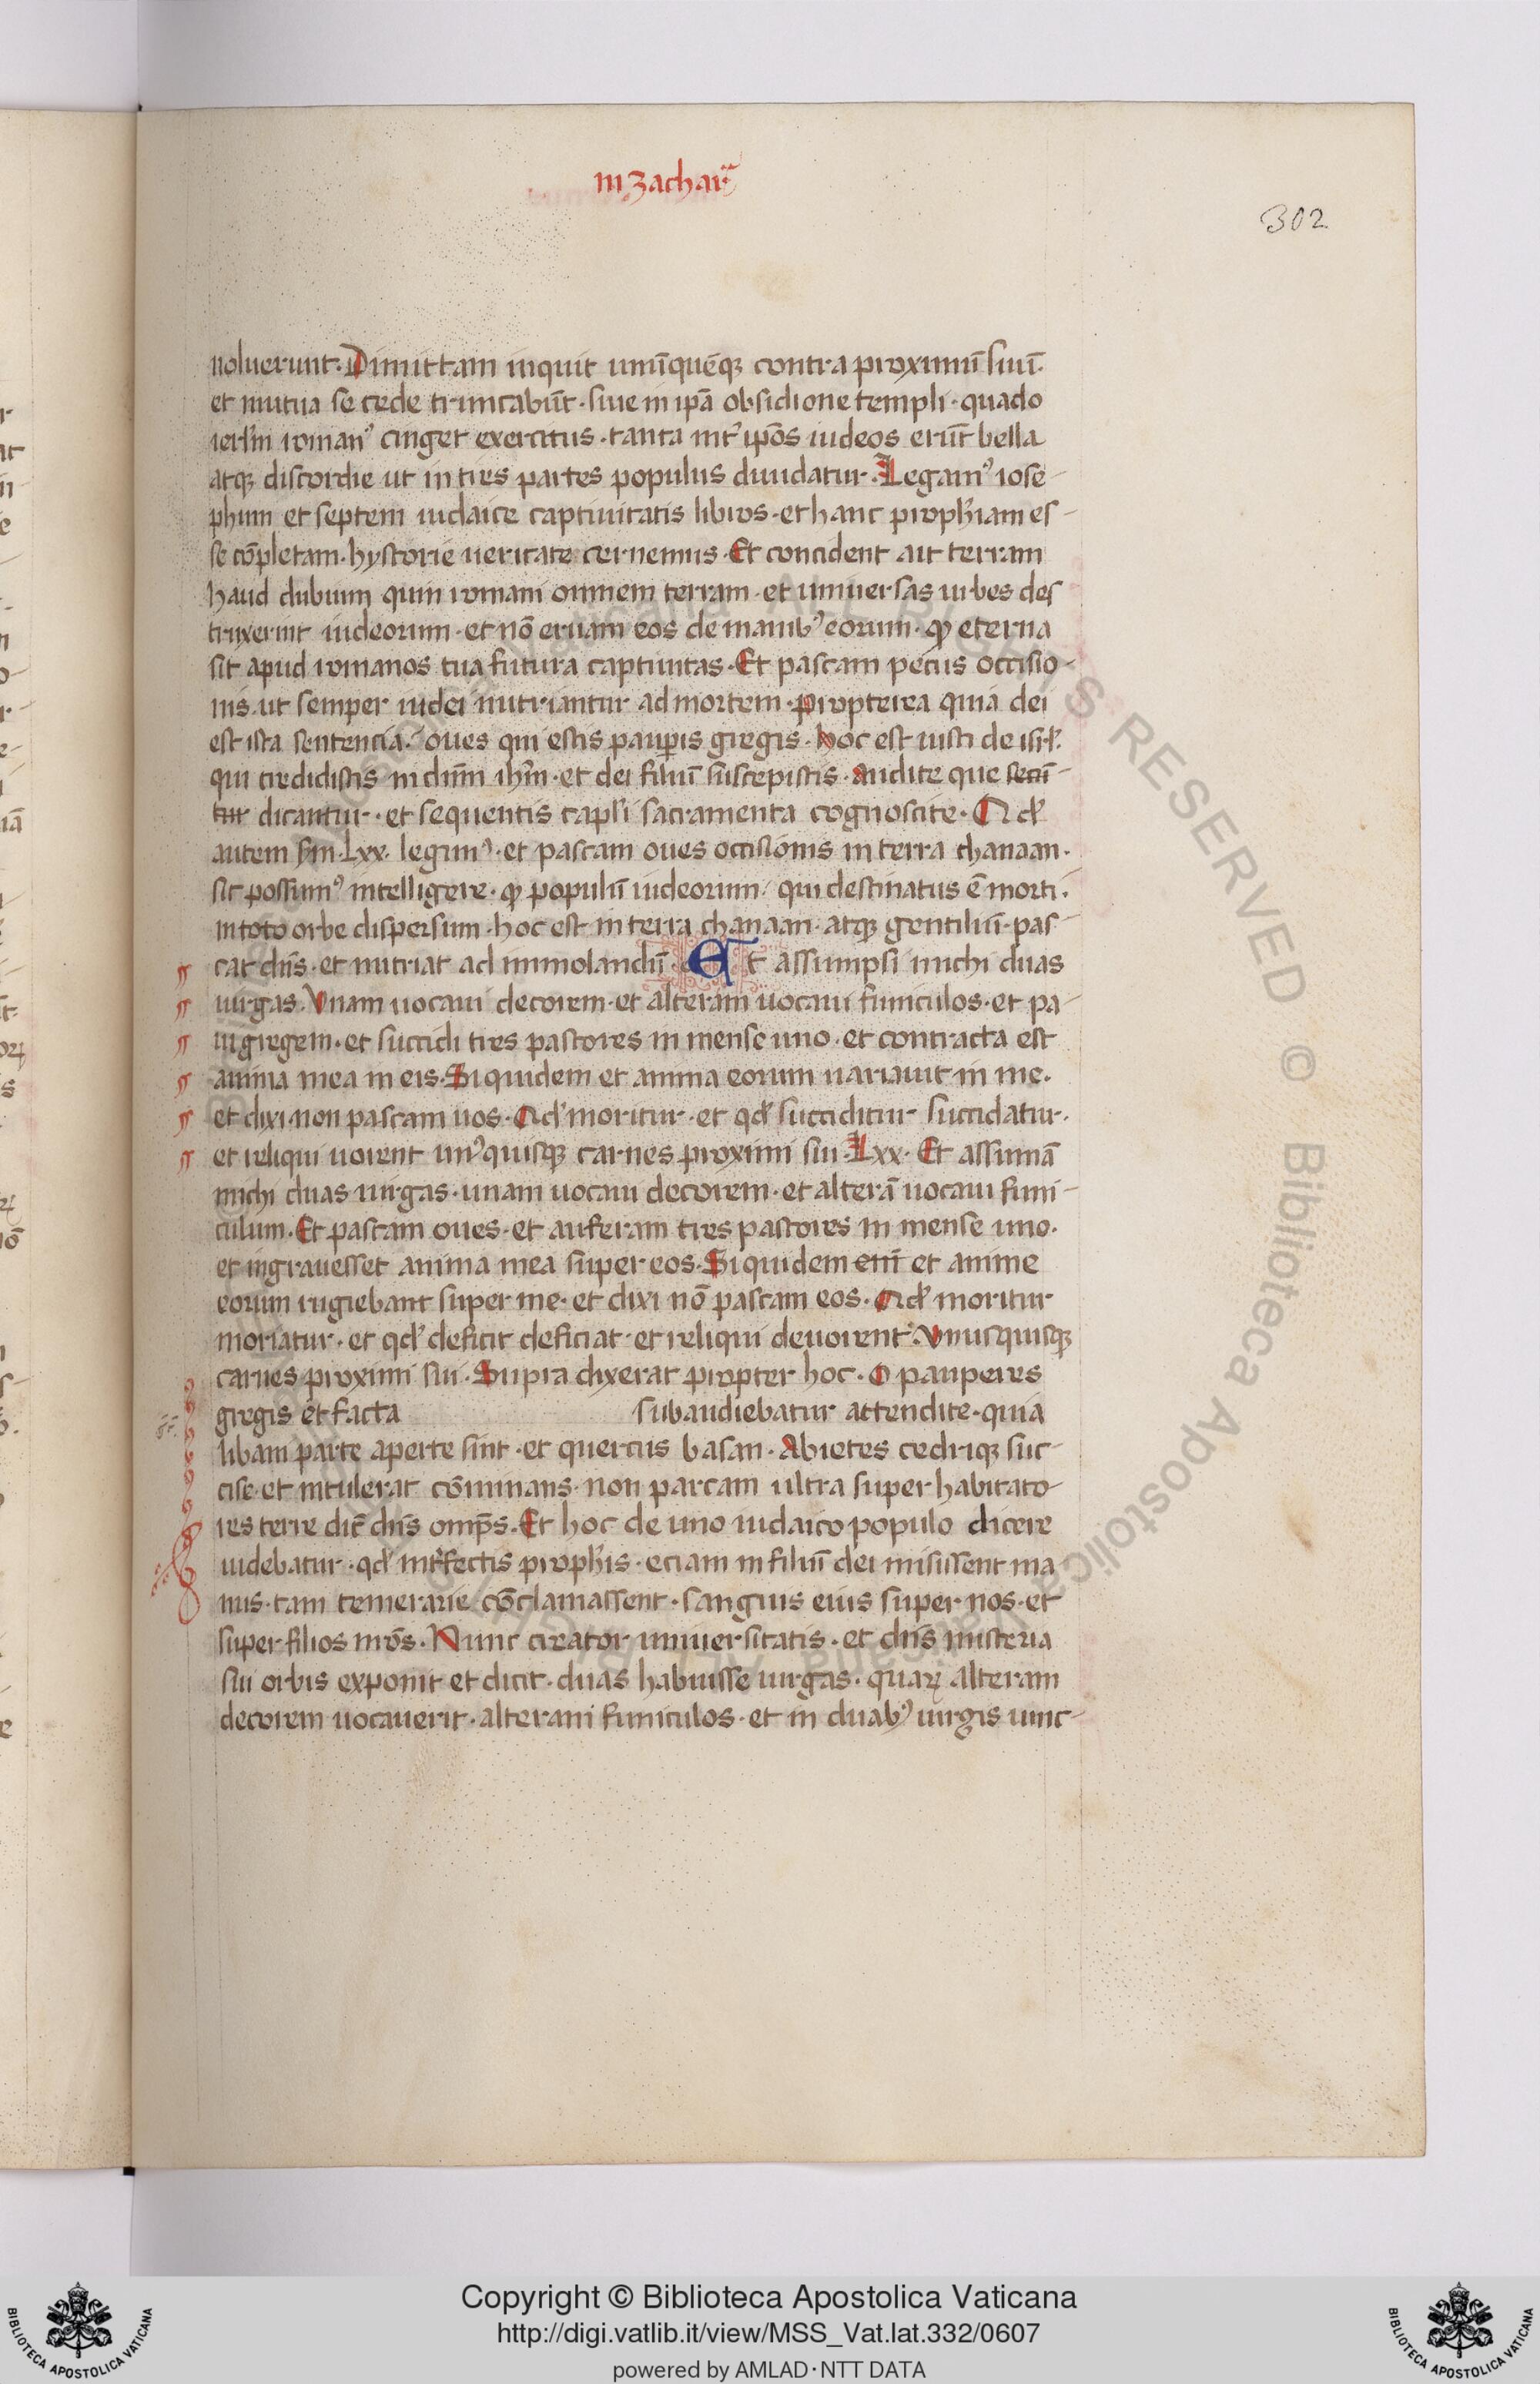 in zachar̄
302
noluerunt. Dimittam inquit unūquēq; contra proximū suū.
et mutua se cede truncabūt. siue in ip̄a obsidione templi. quādo
ierl̄m romanꝰ cinget exercitus. tanta int̄ ip̄os iudeos erūt bella
atq; discordie ut in tres partes populus diuidatur. Legamꝰ iose-
phum et septem iudaice captiuitatis libros. et hanc proph̄iam es-
se cōpletam. hystorie ueritate cernemus. Et concident ait terram
haud dubium quin romani omnem terram. et uniuersas urbes des
truxerint iudeorum. et nō eruam eos de manibꝰ eorum. ꝙ eterna
sit apud romanos tua futura captiuitas. Et pascam pecus occisio-
nis. ut semper iudei nutriantur ad mortem. propterea quia dei
est ista sentencia. oues qui estis paup̄is gregis. hoc est iusti de isrl̄.
qui credidistis in dn̄m ih̄m. et dei filiū suscepistis. audite que secū-
tur dicantur. et sequentis capl̄i sacramenta cognoscite. Qd̄
autem scd̄m. Lxx. legimꝰ. et pascam oues occisionis in terra chanaan.
sic possumꝰ intelligere. ꝙ populū iudeorum. qui destinatus ē morti.
in toto orbe dispersum. hoc est in terra chanaan. atq; gentiliū. pas-
cat dn̄s. et nutriat ad immolandū. Et assumpsi michi duas
uirgas. Vnam uocaui decorem. et alteram uocaui funiculos. et pa-
ui gregem. et succidi tres pastores in mense uno. et contracta est
anima mea in eis. Siquidem et anima eorum uariauit in me.
et dixi. non pascam uos. Qd̄ moritur. et qd̄ succiditur succidatur.
et reliqui uorent unꝰquisq; carnes proximi sui. Lxx. Et assumā
michi duas uirgas. unam uocaui decorem. et alterā uocaui funi-
culum. Et pascam oues. et auferam tres pastores in mense uno.
et ingrauesset anima mea super eos. Siquidem eni et anime
eorum rugiebant super me. et dixi nō pascam eos. Qd̄ moritur
moriatur. et qd̄ deficit deficiat. et reliqui deuorent. Vnusquisq;
carnes proximi sui. Supra dixerat propter hoc. O pauperes
gregis et facta subaudiebatur attendite. quia
libani parte aperte sint. et quercus basan. Abietes cedriq; suc-
cise. et intulerat cōminans. non parcam ultra super habitato-
res terre dic̄ dn̄s omp̄s. Et hoc de uno iudaico populo dicere
uidebatur. qd̄ int̄fectis proph̄is. eciam in filiū dei misissent ma
nus. tam temerarie cōclamassent. sanguis eius super nos. et
super filios nr̄os. Nunc creator uniuersitatis. et dn̄s misteria
sui orbis exponit et dicit. duas habuisse uirgas. quaꝝ alteram
decorem uocauerit. alteram funiculos. et in duabꝰ uirgis uinc-
Copyright © Biblioteca Apostolica Vaticana
http://digi.vatlib.it/view/MSS_Vat.lat.332/0607
powered by AMLAD·NTT DATA